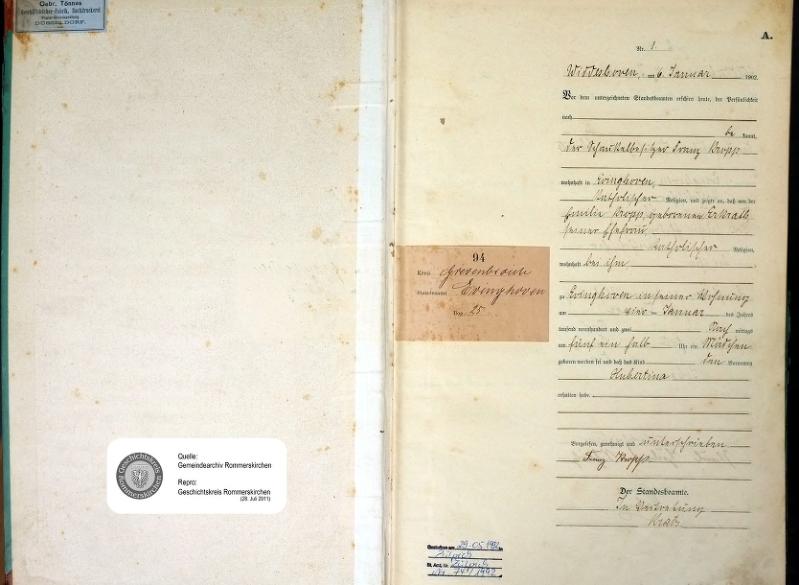 Gebr. Tönnes
Geschäftsbücher-Fabrik, Buchdruckerei
DÜSSELDORF.
Quelle:
Gemeindearchiv Rommerskirchen
Repro:
Geschichtskreis Rommerskirchen
(28. Juli 2011)
Geschichtskreis
Rommerskirchen
94
Kreis Grevenbroich
Standesamt Evinghoven
Bog. 25
Gestorben am 29.05.1992
Zülpich
St. Amt. Nr. Zülpich
A.
Nr. 1.
Widdeshoven, am 6. Januar 1902.
Vor dem unterzeichneten Standesbeamten erschien heute, der Persönlichkeit
nach
be kannt,
der Franz Kropp
wohnhaft in Evinghoven,
katholischer Religion, und zeigte an, daß von der
Emilie Kropp, geborenen
seiner Ehefrau,
katholischer Religion,
wohnhaft bei ihm
zu Evinghoven in seiner Wohnung
am vier ten Januar des Jahres
tausend neunhundert und zwei Nach mittags
um fünf ein halb Uhr ein Mädchen
geboren worden sei und daß das Kind den Vornamen
Hubertina
erhalten habe.
Vorgelesen, genehmigt und unterschrieben
Franz Kropp
Der Standesbeamte.
In Vertretung